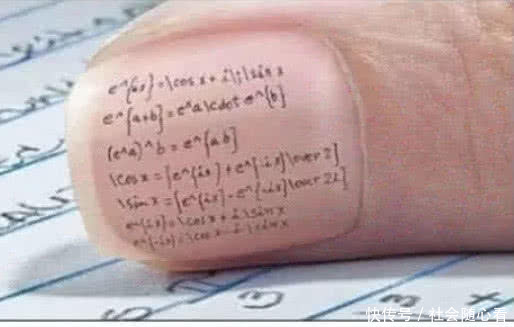 e^{ix}=\cos x+i\;\sin x
e^{a+b}=e^a\cdot e^{b}
(e^a)^b=e^{ab}
\cos x=[e^{ix}+e^{-ix}\over 2]
\sin x=[e^{ix}-e^{-ix}\over 2i]
e^{ix}=\cos x+i\sin x
e^{-ix}=\cos x-i\sin x
3
快传号/社会随心看